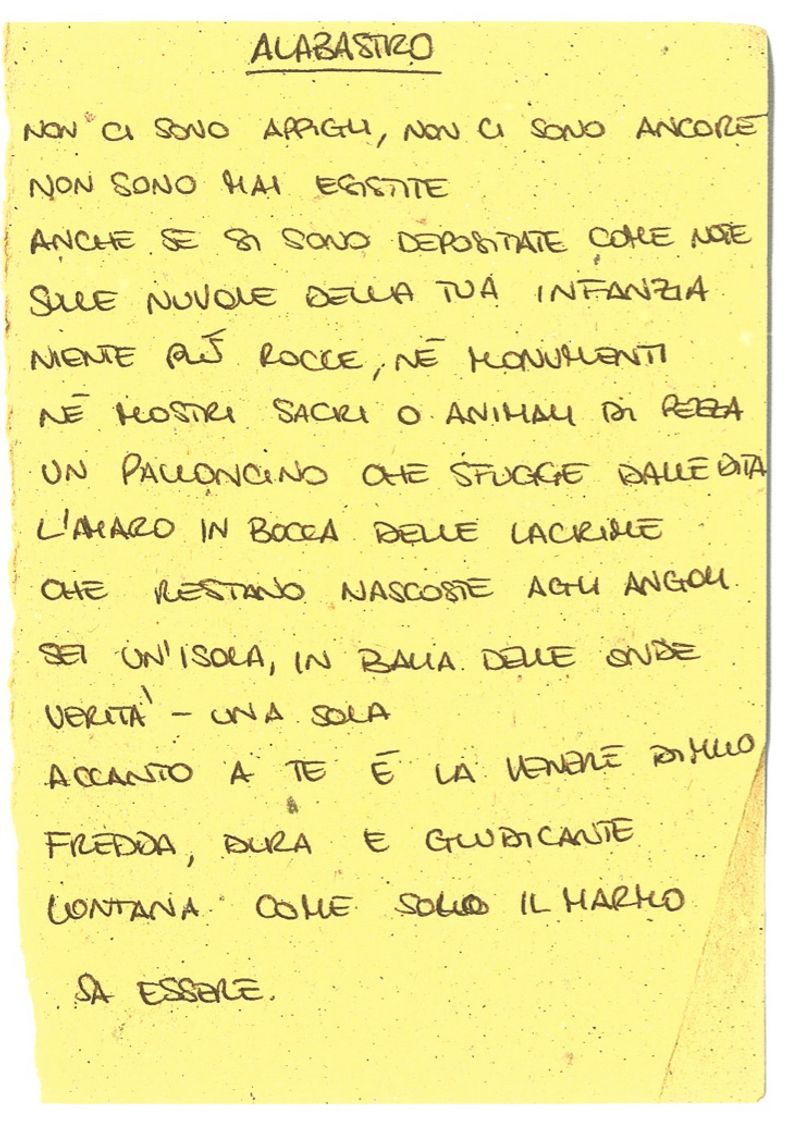 ALABASTRO
NON CI SONO APPIGLI, NON CI SONO ANCORE
NON SONO MAI ESISTITE
ANCHE SE SI SONO DEPOSITATE COME NOTE
SULLE NUVOLE DELLA TUA INFANZIA
NIENTE PIÙ ROCCE, NÉ MONUMENTI
NÉ MOSTRI SACRI O ANIMALI DI PEZZA
UN PALLONCINO CHE SFUGGE DALLE DITA
L'AMARO IN BOCCA DELLE LACRIME
CHE RESTANO NASCOSTE AGLI ANGOLI
SEI UN'ISOLA, IN BALIA DELLE ONDE
VERITA' – UNA SOLA
ACCANTO A TE È LA VENERE DI MILO
FREDDA, DURA E GIUDICANTE
LONTANA COME SOLO IL MARMO
SA ESSERE.